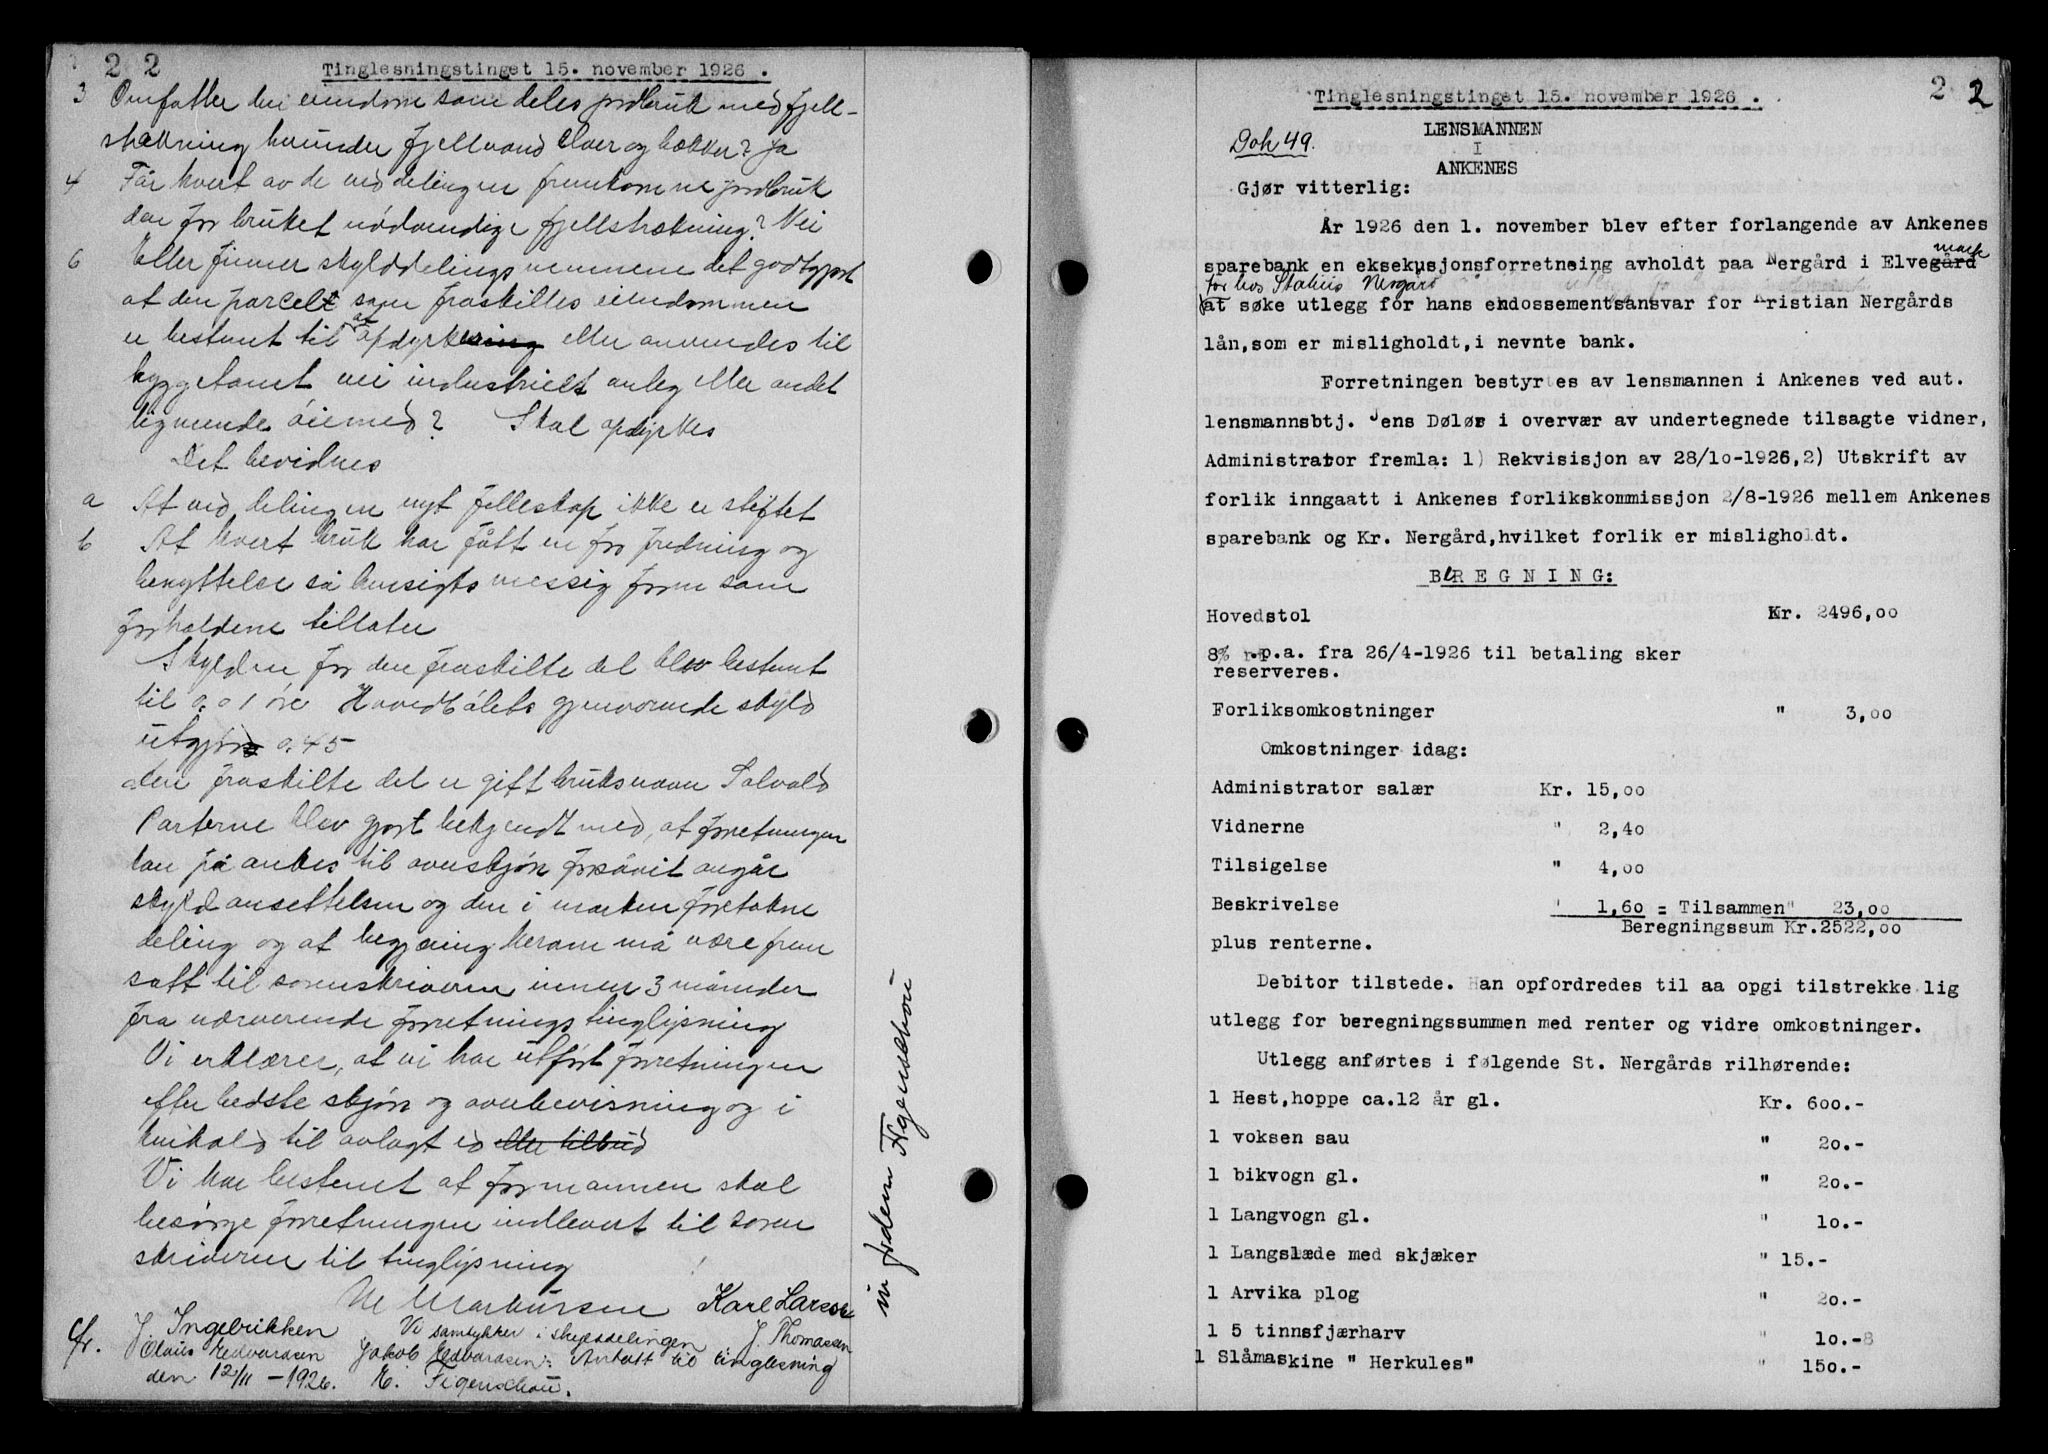 2 2
Tinglesningstinget 15. november 1926 .
3 Omfatter den eiendom som deles jordbruk med fjell-
strekning herunder fjellvand elver og bekker? Ja
4 Får hvert av de ved delingen fremkomne jordbruk
den for bruket nödvendige fjellstrekning? Nei
6 Eller finner skylddelingsmennene det godtgjort
at den parcel som fraskilles eiendommen
er bestemt til at opdyrkes eller anvendes til
byggetomt vei industrielt anleg eller andet
lignende öiemed? Skal opdyrkes
Det bevidnes
a At ved delingen nyt felleskap ikke er stiftet
b At hvert bruk har fått en for fredning og
benyttelse så hensigtsmessig form som
forholdene tillater
Skylden for den fraskilte del blev bestemt
til 0.01 öre Hovedbölets gjenverende skyld
utgjör 0.45
den fraskilte del er gift bruksnavn Solvold
Parterne blev gjort bekjendt med, at forretningen
kan på ankes til overskjön forsåvit angår
skyldansettelsen og den i marken foretakne
deling og at begjæring herom må være frem
satt til sorenskriveren innen 3 måneder
fra nærverende forretnings tinglysning
Vi erklærer, at vi har utfört forretningen
efter bedste skjön og overbevisning og i
henhold til avlagt ed eller tilbud
Vi har bestemt at formannen skal
besörge forretningen indlevert til soren
skriveren til tinglysning
M Markussen Karl Larsen
J Ingebrikken Vi samtykker i skylddelingen J. Thomassen
Olaus Edvardsen Jakob Edvardsen: Avholt til tinglesning
den 12/11 - 1926. E. Figenschou.
cfr.
Figenschou
2 2
Tinglesningstinget 15. november 1926 .
Dok 49.
LENSMANNEN
I
ANKENES
Gjør vitterlig:
År 1926 den 1. november blev efter forlangende av Ankenes
sparebank en eksekusjonsforretneing avholdt paa Nergård i Elvegård mark
for hos Statius Nergård
at søke utlegg for hans endossementsansvar for Kristian Nergårds
lån,som er misligholdt,i nevnte bank.
Forretningen bestyrtes av lensmannen i Ankenes ved aut.
lensmannsbtj. Jens Døløe i overvær av undertegnede tilsagte vidner,
Administrator fremla: 1) Rekvisisjon av 28/10-1926,2) Utskrift av
forlik inngaatt i Ankenes forlikskommissjon 2/8-1926 mellem Ankenes
sparebank og Kr. Nergård,hvilket forlik er misligholdt.
BEREGNING:
Hovedstol Kr. 2496,00
8% r.p.a. fra 26/4-1926 til betaling sker
reserveres.
Forliksomkostninger " 3,00
Omkostninger idag:
Administrator salær Kr. 15,00
Vidnerne " 2,40
Tilsigelse " 4,00
Beskrivelse " 1,60 = Tilsammen" 23,00
Beregningssum Kr.2522,00
plus renterne.
Debitor tilstede. Han opfordredes til aa opgi tilstrekke lig
utlegg for beregningssummen med renter og vidre omkostninger.
Utlegg anførtes i følgende St. Nergårds rilhørende:
1 Hest,hoppe ca.12 år gl. Kr. 600.-
1 voksen sau " 20.-
1 bikvogn gl. " 20.-
1 Langvogn gl. " 10.-
1 Langslæde med skjæker " 15.-
1 Arvika plog " 20.-
1 5 tinnsfjærharv " 10.-8
1 Slåmaskine " Herkules" " 150.-